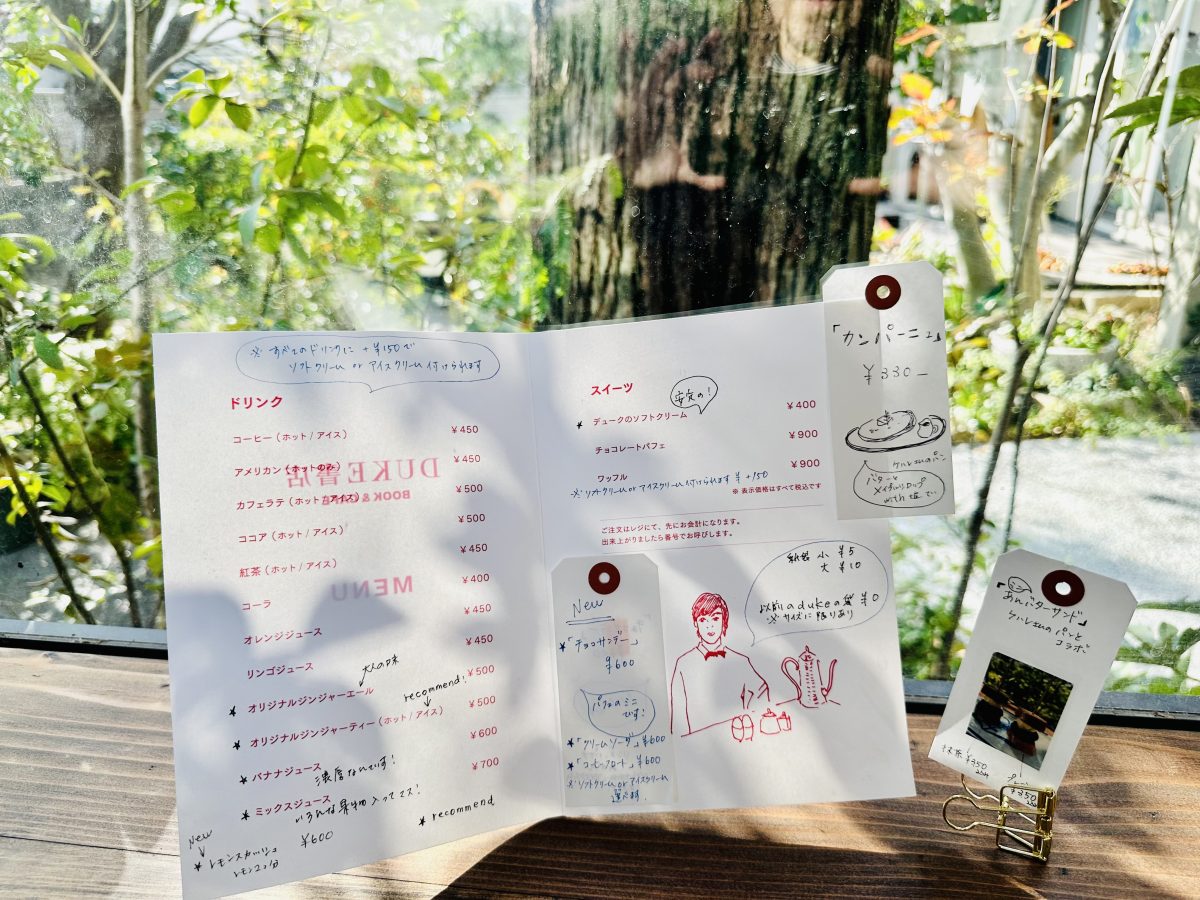 ※ すべてのドリンクに +¥150で
ソフトクリーム or アイスクリーム 付けられます
ドリンク
コーヒー（ホット / アイス） ¥450
アメリカン（ホットのみ） ¥450
カフェラテ（ホット / アイス） ¥500
ココア（ホット / アイス） ¥500
紅茶（ホット / アイス） ¥450
コーラ ¥400
オレンジジュース ¥450
リンゴジュース ¥450
大人の味
★ オリジナルジンジャーエール ¥500
recommend!
★ オリジナルジンジャーティー（ホット / アイス） ¥500
★ バナナジュース ¥600
濃厚なんです!
★ ミックスジュース ¥700
いろんな果物 入ってマス!
New
★ レモンスカッシュ ¥600
レモン2コ分
★ recommend
DUKE書店
BOOK &
MENU
スイーツ
安定の!
★ デュークのソフトクリーム ¥400
チョコレートパフェ ¥900
ワッフル ¥900
※ソフトクリーム or アイスクリーム 付けられます ¥+150
※ 表示価格はすべて税込です
ご注文はレジにて、先にお会計になります。
出来上がりましたら番号でお呼びします。
New
★「チョコサンデー」
¥600
パフェのミニ
です!
★「クリームソーダ」¥600
★「コーヒーフロート」¥600
※ソフトクリーム or アイスクリーム
選べます.
紙袋 小 ¥5
大 ¥10
以前のdukeの袋 ¥0
※サイズに限りあり
「カンパーニュ」
¥330-
ケハレヤのパン
バターと
メイプルシロップ
with 塩で
ミニ
あんバターサンド」
ケハレヤのパンと
コラボ
抹茶 ¥350
プレーン
¥350